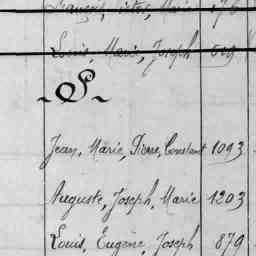 François, Victor, Marie 76
Louis, Marie, Joseph 509
~ P ~
Jean, Marie, Pierre, Constant 1093
Auguste, Joseph, Marie 1203
Louis, Eugène, Joseph 879